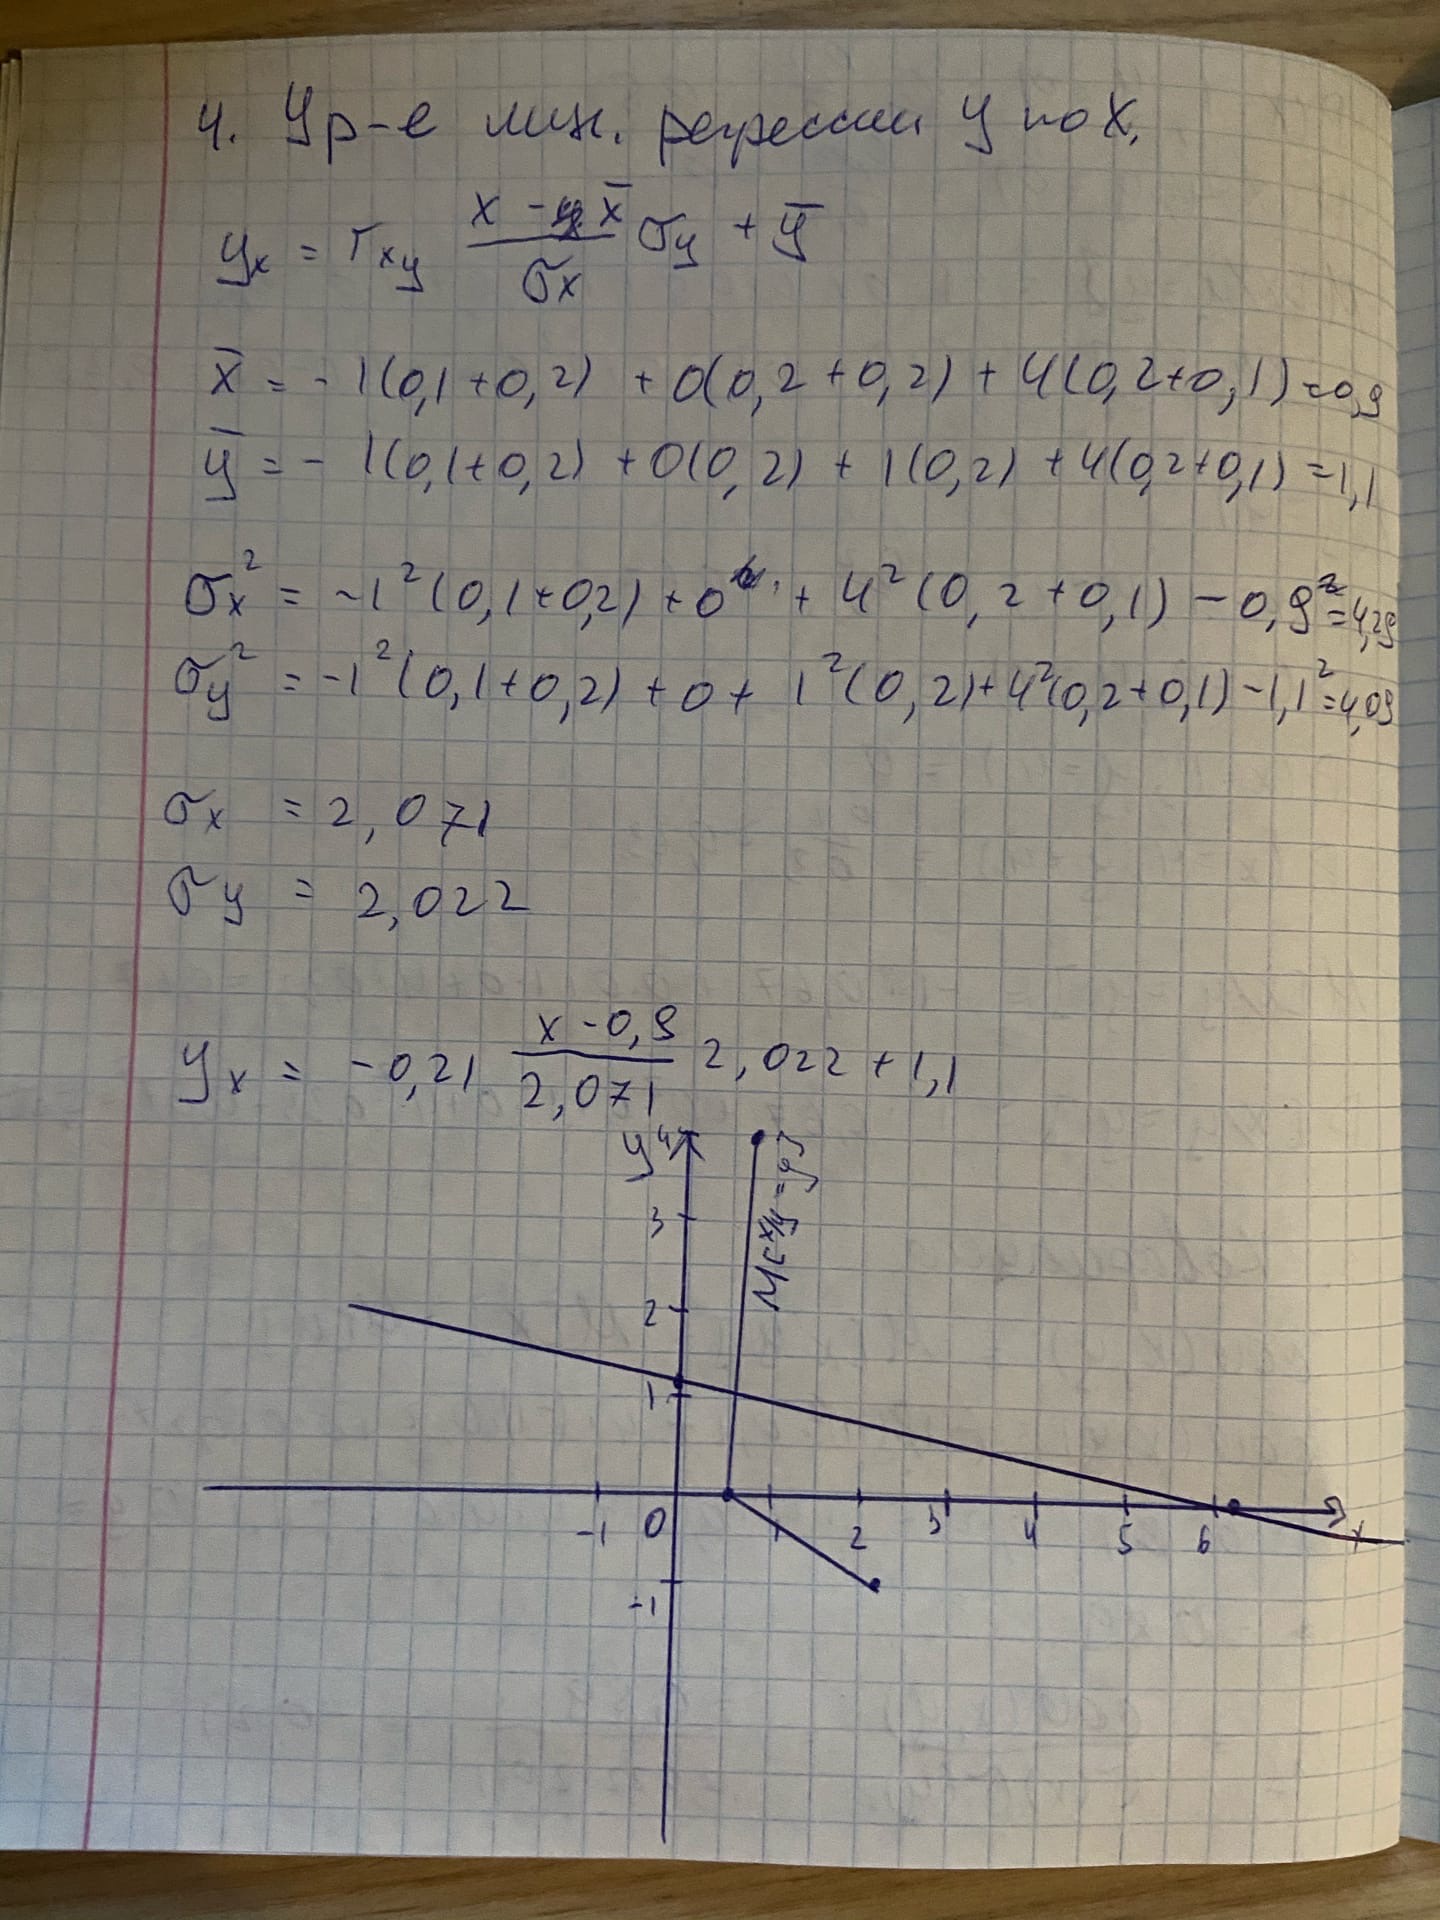 4. Ур-е лин. регрессии У по Х.
yₓ = r_xy (x - x̄)/σx σy + ȳ
x̄ = -1(0,1+0,2) + 0(0,2+0,2) + 4(0,2+0,1)=0,9
ȳ = -1(0,1+0,2) + 0(0,2) + 1(0,2) + 4(0,2+0,1) = 1,1
σx² = -1²(0,1+0,2) + 0 + 4²(0,2+0,1) - 0,9² = 4,29
σy² = -1²(0,1+0,2) + 0 + 1²(0,2) + 4²(0,2+0,1) - 1,1² = 4,09
σx = 2,071
σy = 2,022
yₓ = -0,21 (x - 0,9)/2,071 2,022 + 1,1
y 4
M[x/y=y]
3
2
1
-1 0 1 2 3 4 5 6 x
-1